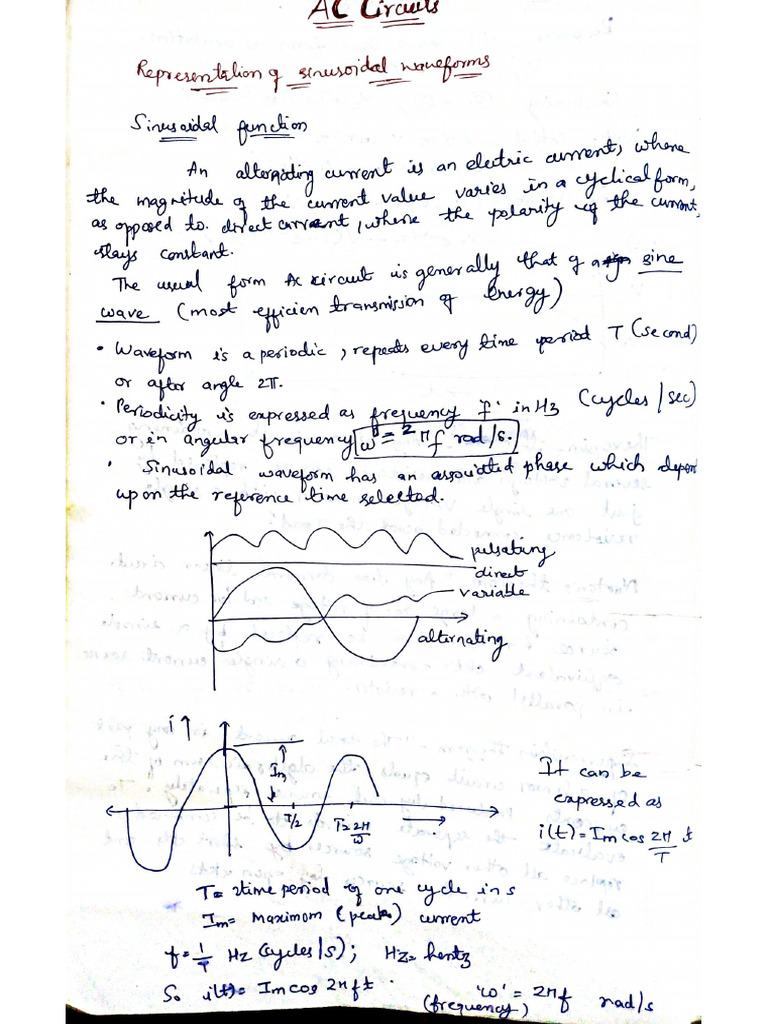 AC Circuits
Representation of sinusoidal waveforms
Sinusoidal function
An alternating current is an electric current, where
the magnitude of the current value varies in a cyclical form,
as opposed to direct current, where the polarity of the current,
stays constant.
The usual form Ac circuit is generally that of a sine
wave (most efficien transmission of Energy)
• Waveform is a periodic, repeats every time period T (second)
or after angle 2π.
• Periodicity is expressed as frequency 'f' in Hz (cycles/sec)
or, in angular frequency ω = 2πf rad/s.
• Sinusoidal waveform has an associated phase which depen
upon the reference time selected.
pulsating
direct
variable
alternating
i ↑
Im
T/2
T=2π/ω
It can be
expressed as
i(t) = Im cos 2π/T t
T = time period of one cycle in s
Im = Maximom (peak) current
f = 1/T Hz (cycles/s); Hz = hertz
So i(t) = Im cos 2πft.
'ω' = 2πf rad/s
(frequency)